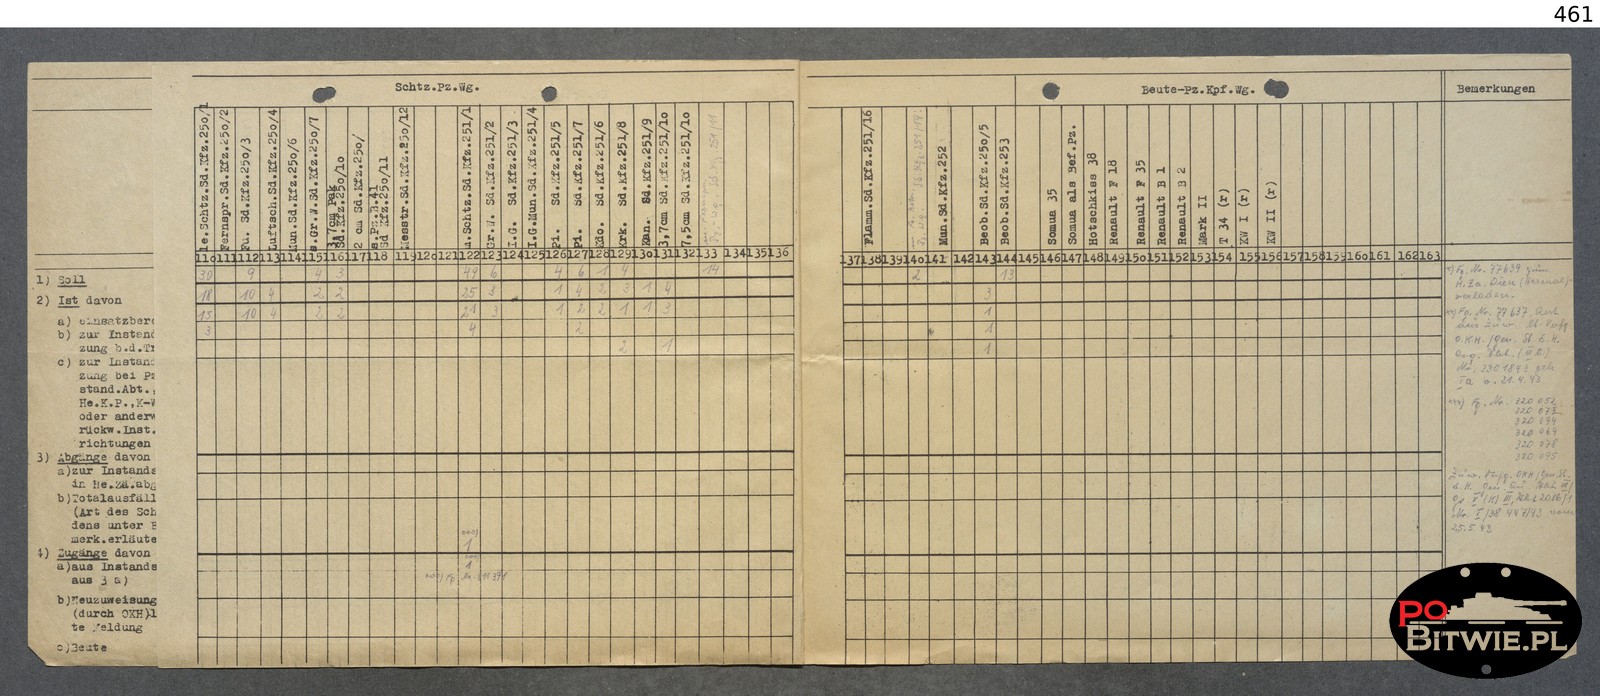 461
Schtz.Pz.Wg.
Beute-Pz.Kpf.Wg.
Bemerkungen
le.Schtz.Sd.Kfz.250/1
Fernspr.Sd.Kfz.250/2
Fu. Sd.Kfz.250/3
Luftsch.Sd.Kfz.250/4
Mun.Sd.Kfz.250/6
s.Gr.W.Sd.Kfz.250/7
3,7cm Pak
Sd.Kfz.250/10
2 cm Sd.Kfz.250/
s.Pz.B.41
Sd Kfz.250/11
Messtr.Sd.Kfz.250/12
m.Schtz.Sd.Kfz.251/1
Gr.W. Sd.Kfz.251/2
I.G. Sd.Kfz.251/3
I.G.Mun.Sd.Kfz.251/4
Pi. Sd.Kfz.251/5
Pi. Sd.Kfz.251/7
Kdo. Sd.Kfz.251/6
Krk. Sd.Kfz.251/8
Kan. Sd.Kfz.251/9
3,7cm Sd.Kfz.251/10
7,5cm Sd.Kfz.251/10
Flamm.Sd.Kfz.251/16
Mun.Sd.Kfz.252
Beob.Sd.Kfz.250/5
Beob.Sd.Kfz.253
Somua 35
Somua als Bef.Pz.
Hotschkiss 38
Renault F 18
Renault F 35
Renault B 1
Renault B 2
Mark II
T 34 (r)
KW I (r)
KW II (r)
110 111 112 113 114 115 116 117 118 119 120 121 122 123 124 125 126 127 128 129 130 131 132 133 134 135 136
137 138 139 140 141 142 143 144 145 146 147 148 149 150 151 152 153 154 155 156 157 158 159 160 161 162 163
1) Soll
30 9 4 3 49 6 4 6 1 4 14 2 13
2) Ist davon
18 10 4 2 2 25 3 1 4 2 3 1 4 3
a) einsatzbere
15 10 4 2 2 21 3 1 2 2 1 1 3 1
b) zur Instand
3 4 2 1
zung b.d.Tr
2 1 1
c) zur Instand
zung bei Pz
stand.Abt.,
He.K.P.,K-W
oder anderw
rückw.Inst.
richtungen
3) Abgänge davon
a)zur Instands
in He.Za.abg
b)Totalausfäll
(Art des Sch
dens unter B
merk.erläute
1
4) Zugänge davon
a)aus Instands
1
aus 3 a)
b)Neuzuweisung
(durch OKH)l
te Meldung
c)Beute
Fg. Nr. 77639 zum
H.Za. Wien (Arsenal)
verladen.
Fg. Nr. 77637
O.K.H. /Gen. St. d. H.
v. 21.4.43
Fg. Nr. 320 052
320 073
320 094
320 064
320 078
320 095
25.5.43
PO
BITWIE.PL